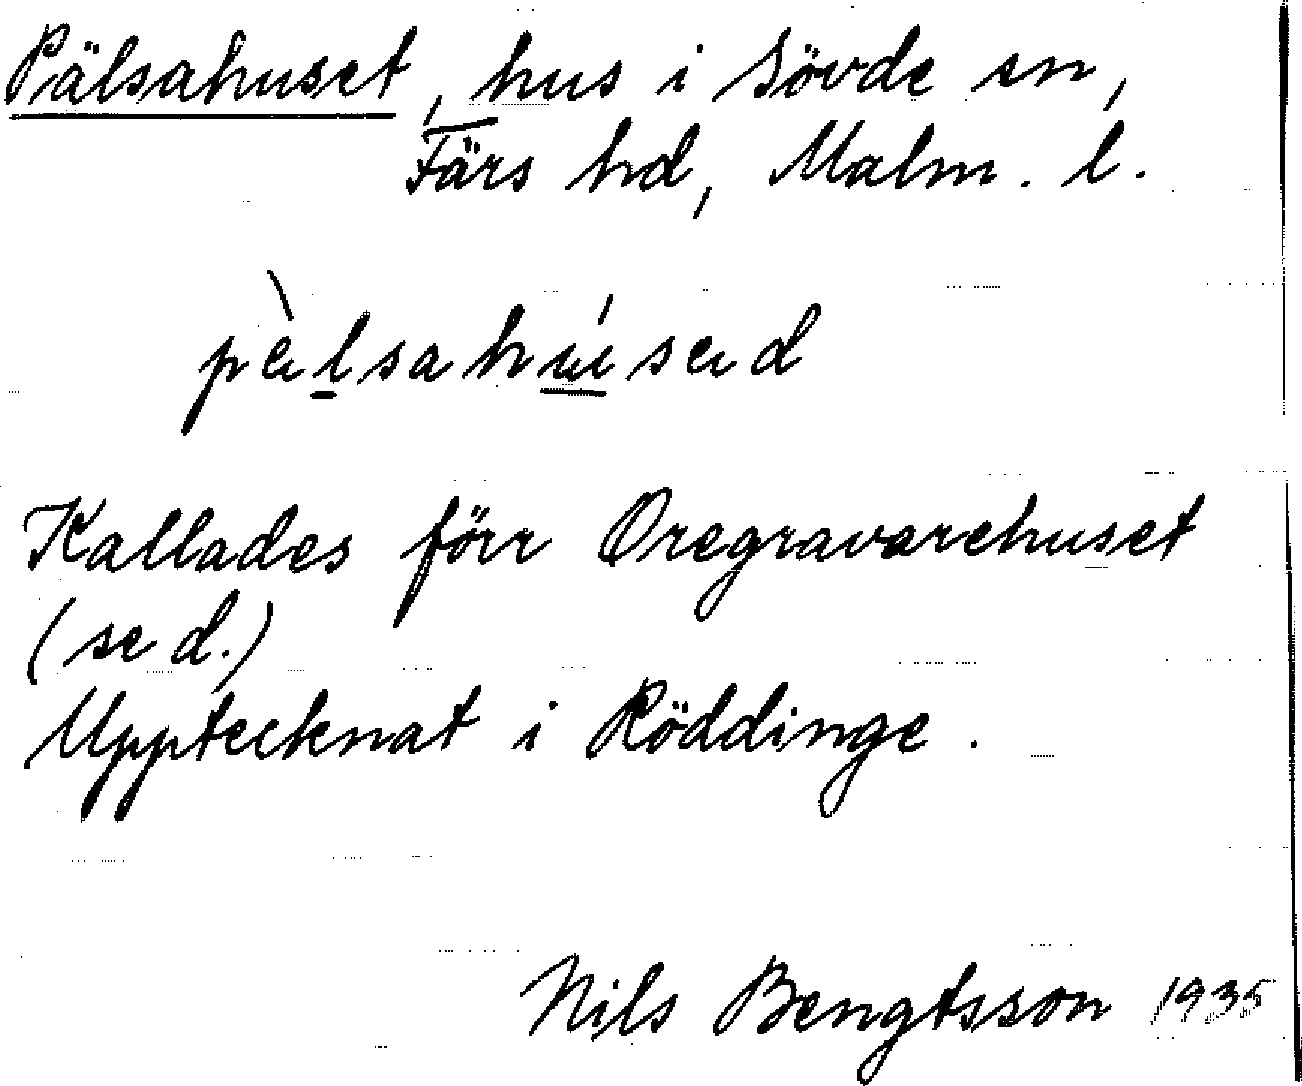 Pälsahuset, hus i Sövde sn,
Färs hd, Malm. l.
pæ̀lsahúsæd
Kallades förr Oregravarehuset
(se d.)
Upptecknat i Röddinge.
Nils Bengtsson 1935